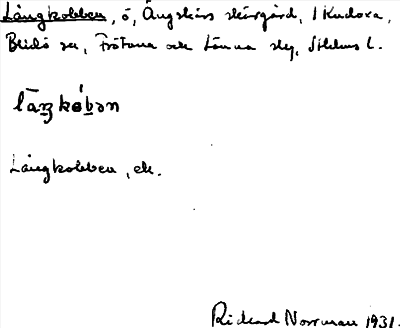 Långkobben, ö, Ängskärs skärgård, 1 Kudoxa,
Blidö sn, Frötuna och Länna skg, Sthlms l.
lāŋkòbən
Långkobben, ek.
Rickard Norrman 1931.